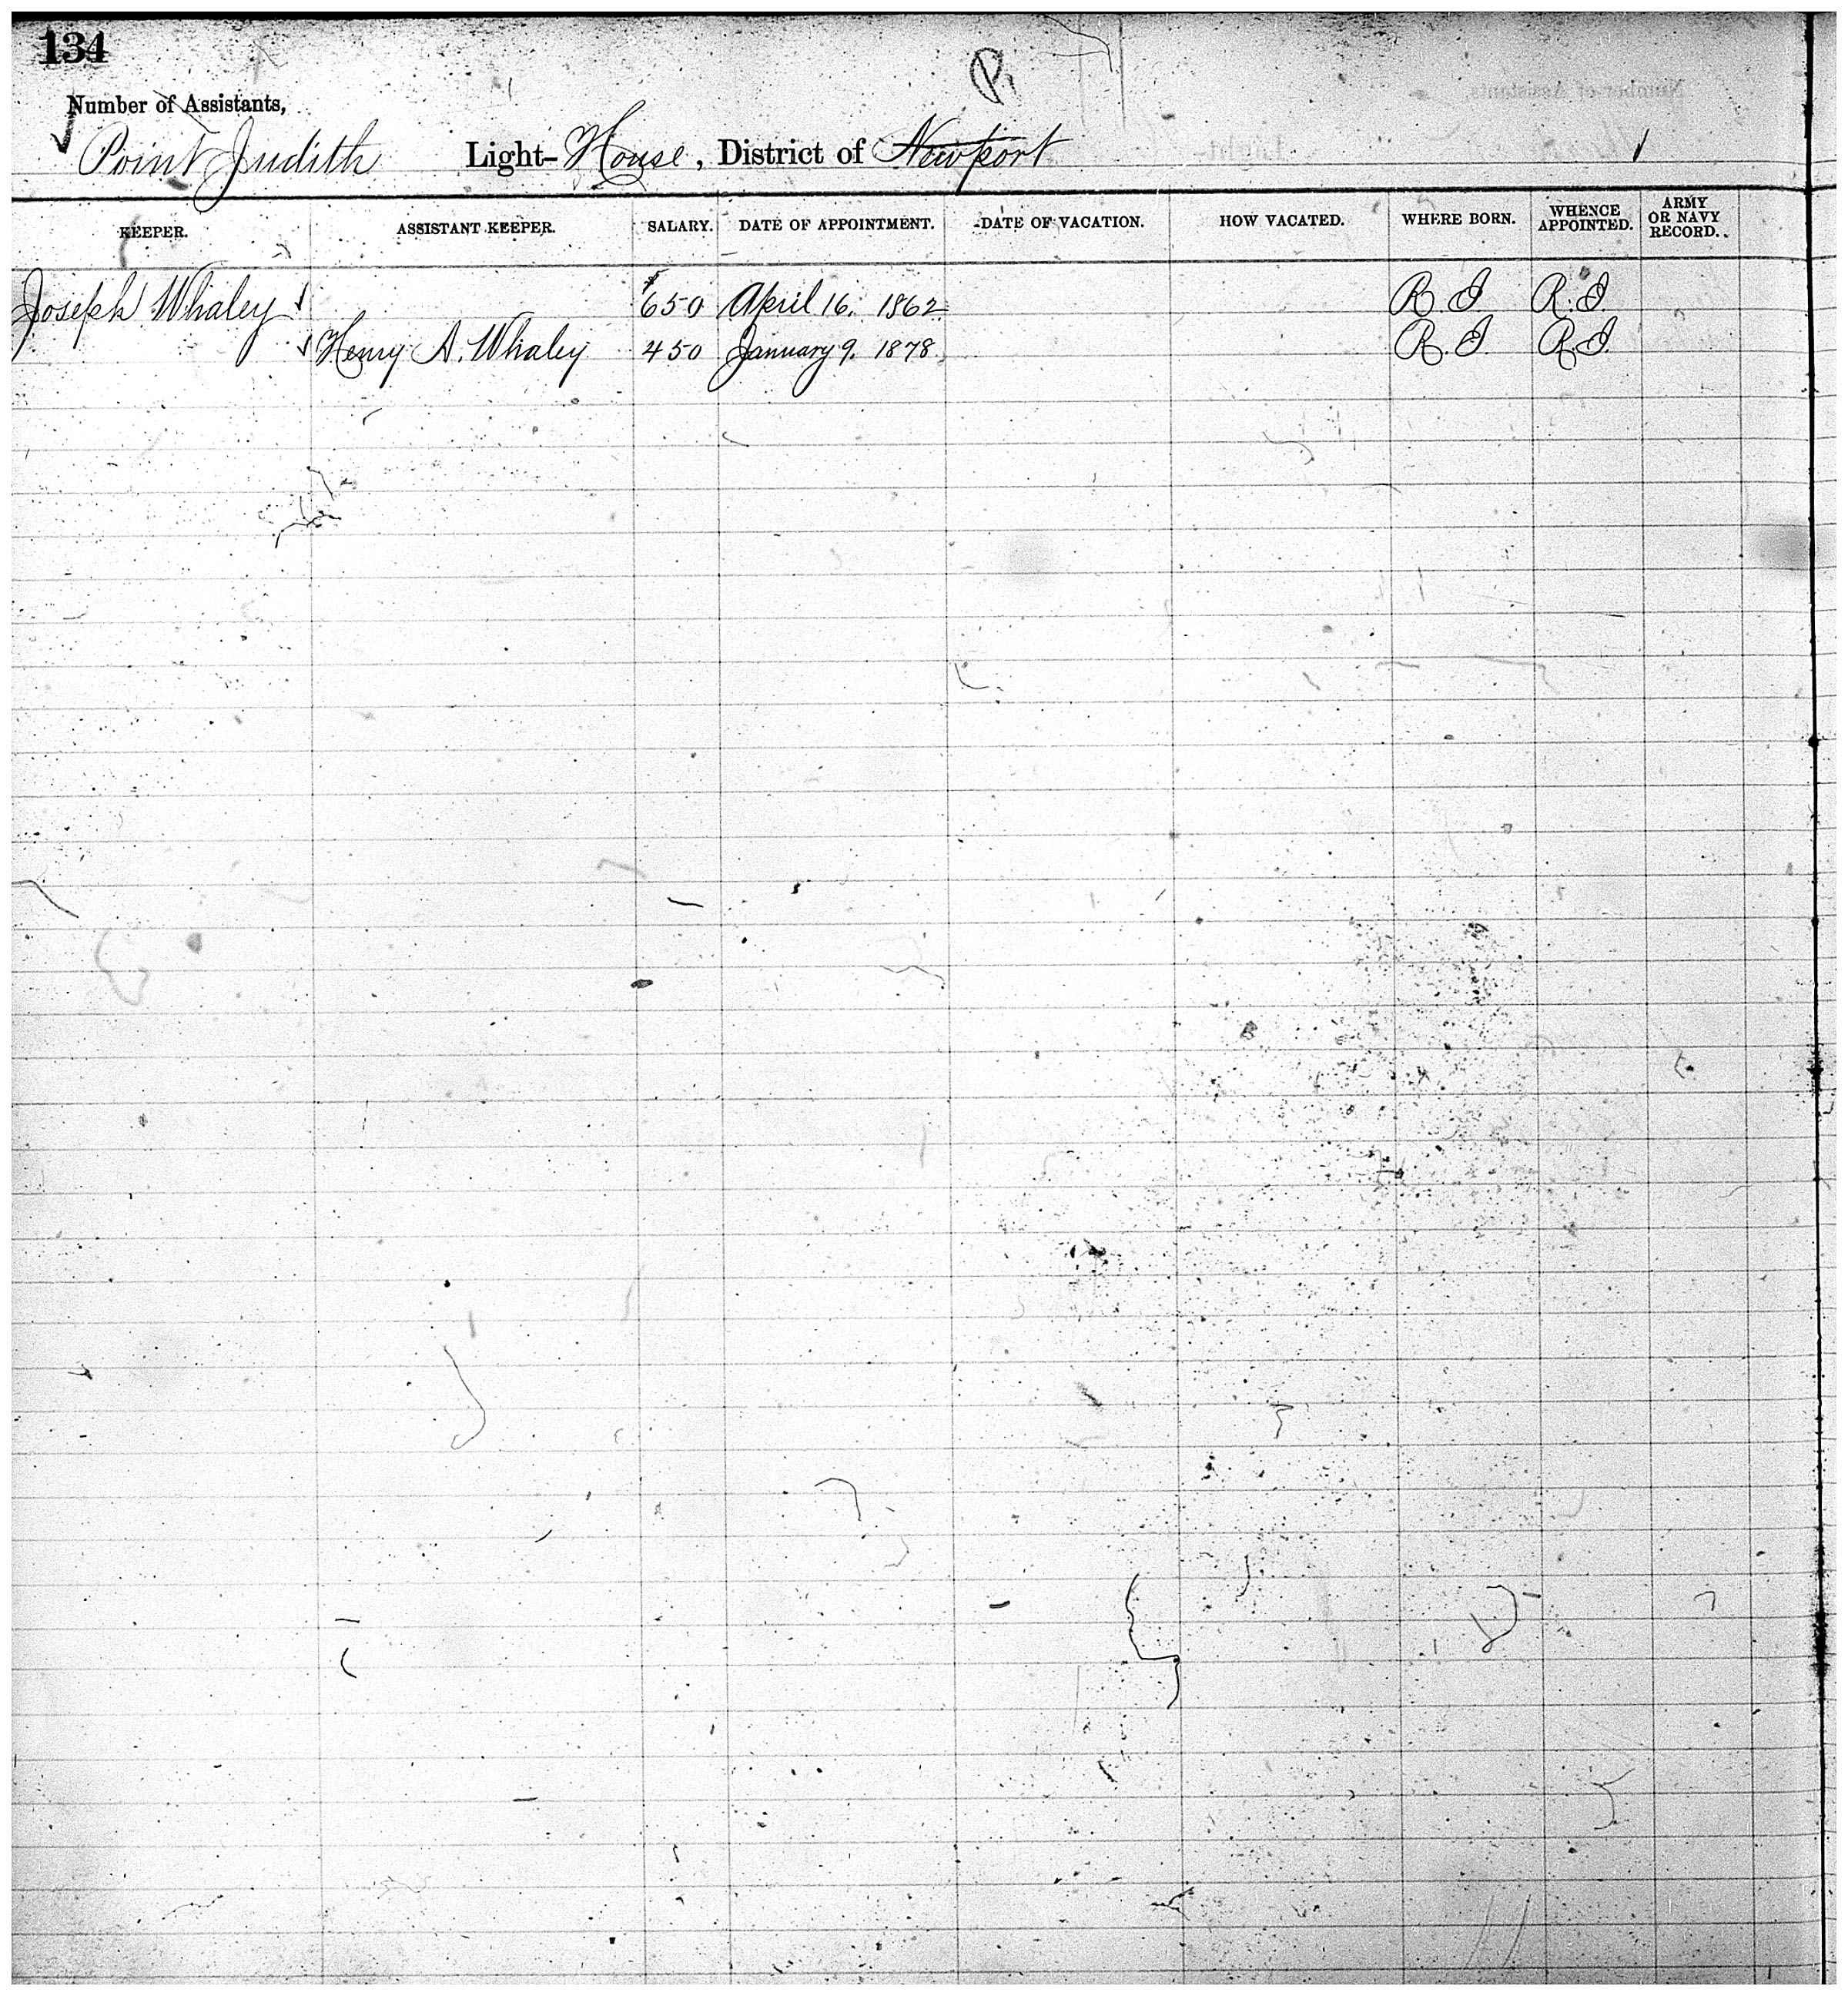 134
P.
Number of Assistants,
Point Judith Light-House, District of Newport
KEEPER. ASSISTANT KEEPER. SALARY. DATE OF APPOINTMENT. DATE OF VACATION. HOW VACATED. WHERE BORN. WHENCE APPOINTED. ARMY OR NAVY RECORD.
Joseph Whaley $650 April 16. 1862 R.I. R.I.
Henry A. Whaley 450 January 9. 1878. R.I. R.I.